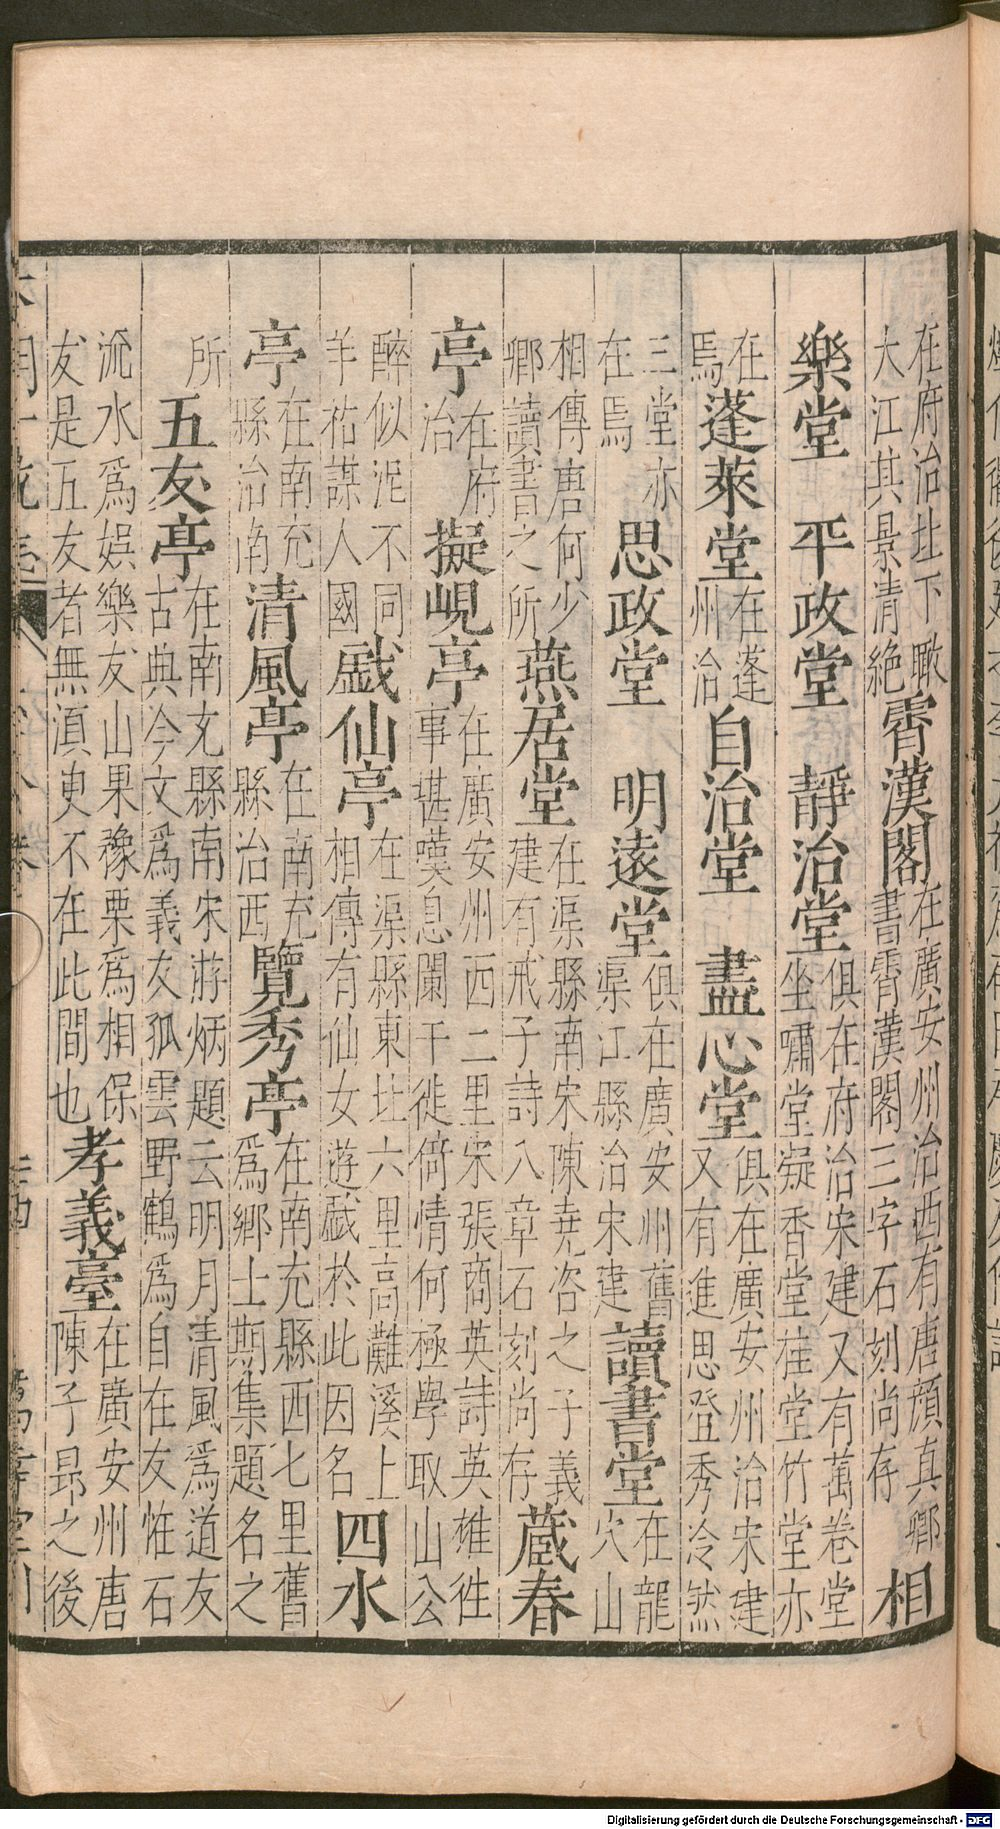 在府治北下瞰大江其景清絶霄漢閣在廣安州治西有唐顔真卿書霄漢閣三字石刻尚存相
樂堂 平政堂 靜治堂俱在府治宋建又有萬卷堂坐嘯堂凝香堂桂堂竹堂亦
在焉蓬萊堂在蓬州治自治堂 盡心堂俱在廣安州治宋建又有進思登秀冷然
三堂亦在焉 思政堂 明遠堂俱在廣安州舊渠江縣治宋建讀書堂在龍穴山
相傳唐何少卿讀書之所燕居堂在渠縣南宋陳堯咨之子義建有戒子詩八章石刻尚存蔵春
亭在府治擬峴亭在廣安州西二里宋張商英詩英雄徃事堪嘆息闌干徙倚情何極學取山公
醉似泥不同羊祜謀人國戱仙亭在渠縣東北六里高灘溪上相傳有仙女遊戱於此因名四水
亭在南充縣治南清風亭在南充縣治西覽秀亭在南充縣西七里舊為鄉士期集題名之
所五友亭在南充縣南宋游炳題云明月清風為道友古典今文為義友孤雲野鶴為自在友恠石
流水為娛樂友山果豫栗為相保友是五友者無湏更不在此間也孝義臺在廣安州唐陳子昻之後
Digitalisierung gefördert durch die Deutsche Forschungsgemeinschaft - DFG